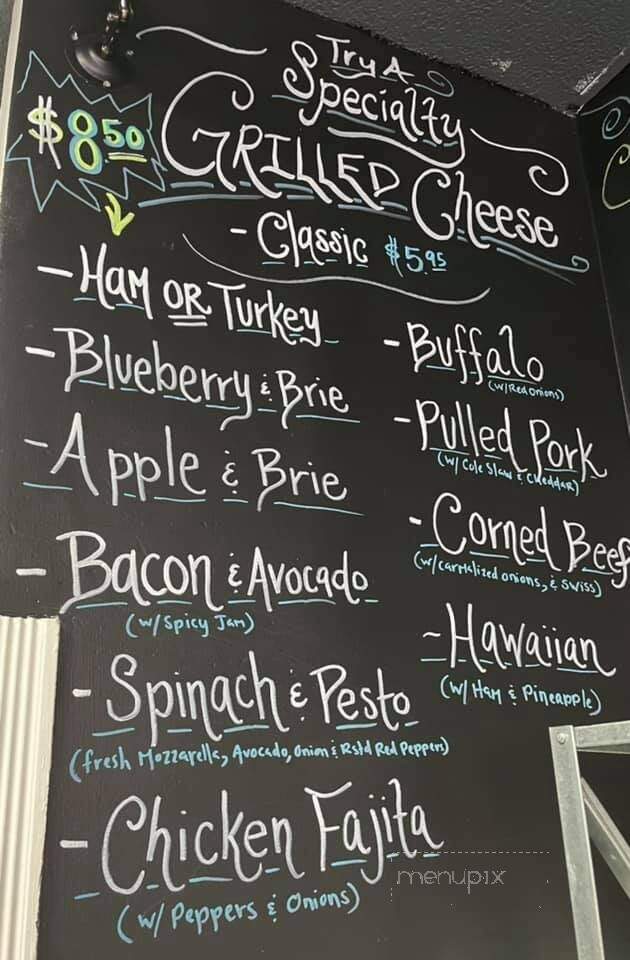 Try A
Specialty
$8.50
GRILLED Cheese
- Classic $5.95
- Ham OR Turkey
- Blueberry & Brie
- Apple & Brie
- Bacon & Avocado
(w/ Spicy Jam)
- Spinach & Pesto
(fresh Mozzarella, Avocado, Onion & Rstd Red Peppers)
- Chicken Fajita
(w/ Peppers & Onions)
- Buffalo
(w/ Red Onions)
- Pulled Pork
(w/ Cole Slaw & Cheddar)
- Corned Beef
(w/ carmalized onions, & Swiss)
- Hawaiian
(w/ Ham & Pineapple)
menupix